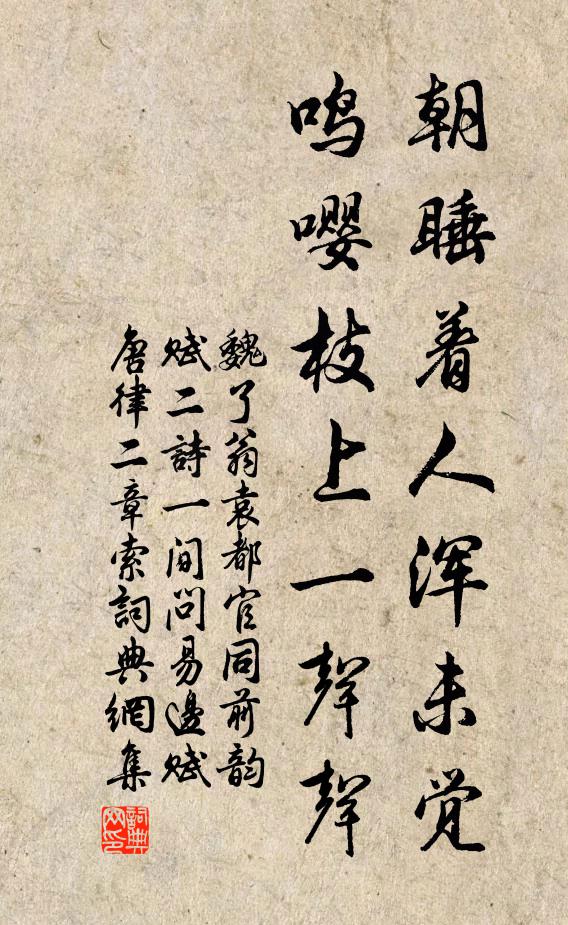 朝睡着人浑未觉
鸣嘤枝上一聲聲
魏了翁袁都官同前韵
赋二詩一间问易邊赋
唐律二章索詞典網集
詞典網印